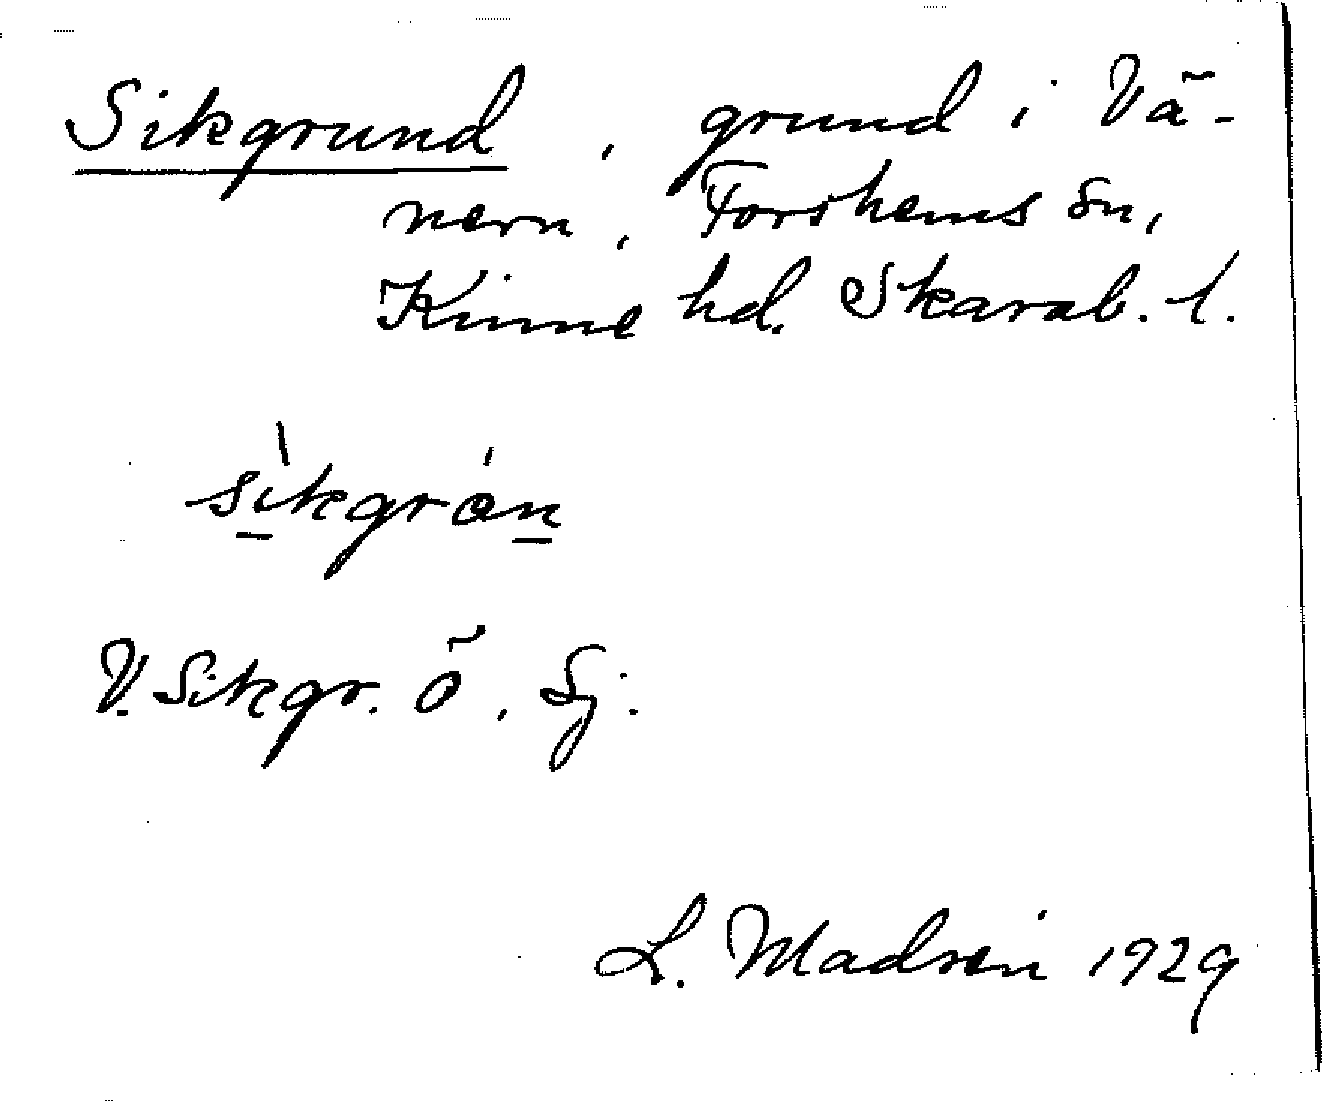 Sikgrund, grund i Vä-
nern, Forshems sn,
Kinne hd. Skarab. l.
sìkgrán
V. Sikgr. Ö, Sj.
L. Madsén 1929